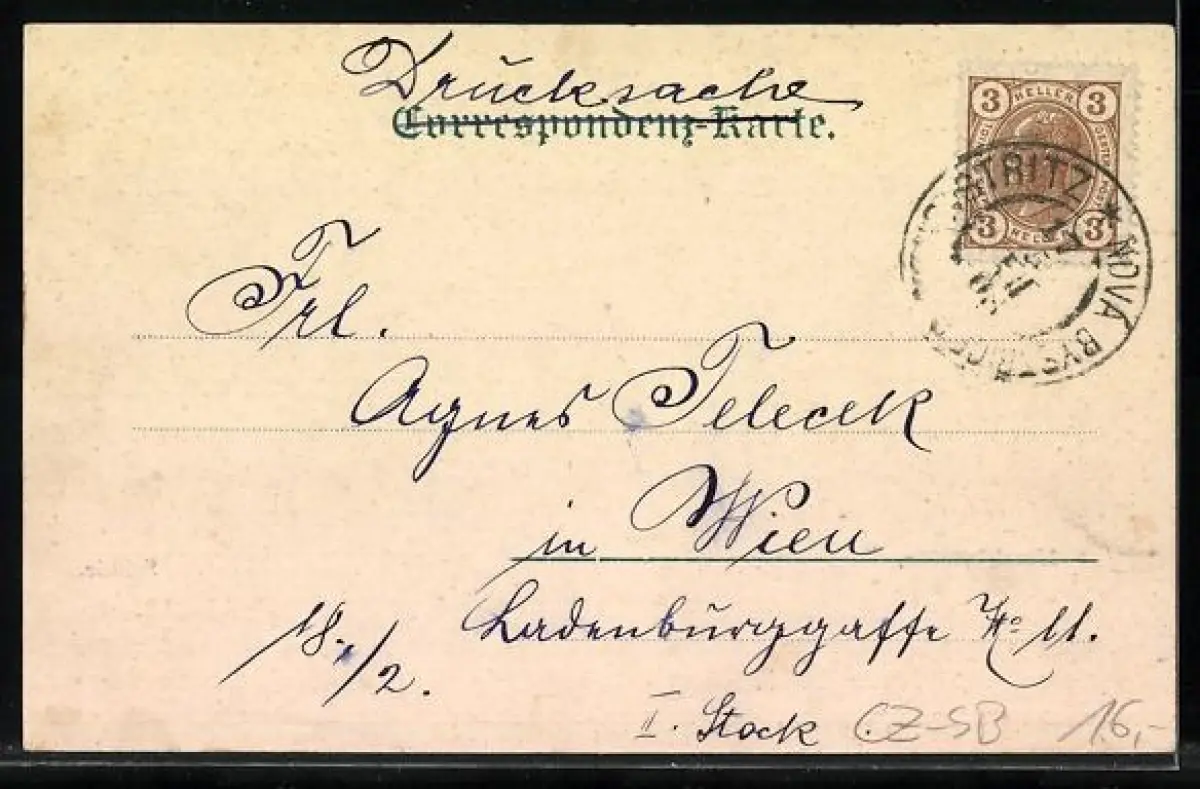 Drucksache
Correspondenz-Karte.
3 HELLER 3
3 HELLER 3
NOVÁ
Frl.
Agnes Telecek
in Wien
18./2. Ladenburggasse No 11.
I. Stock CZ-SB 16,-